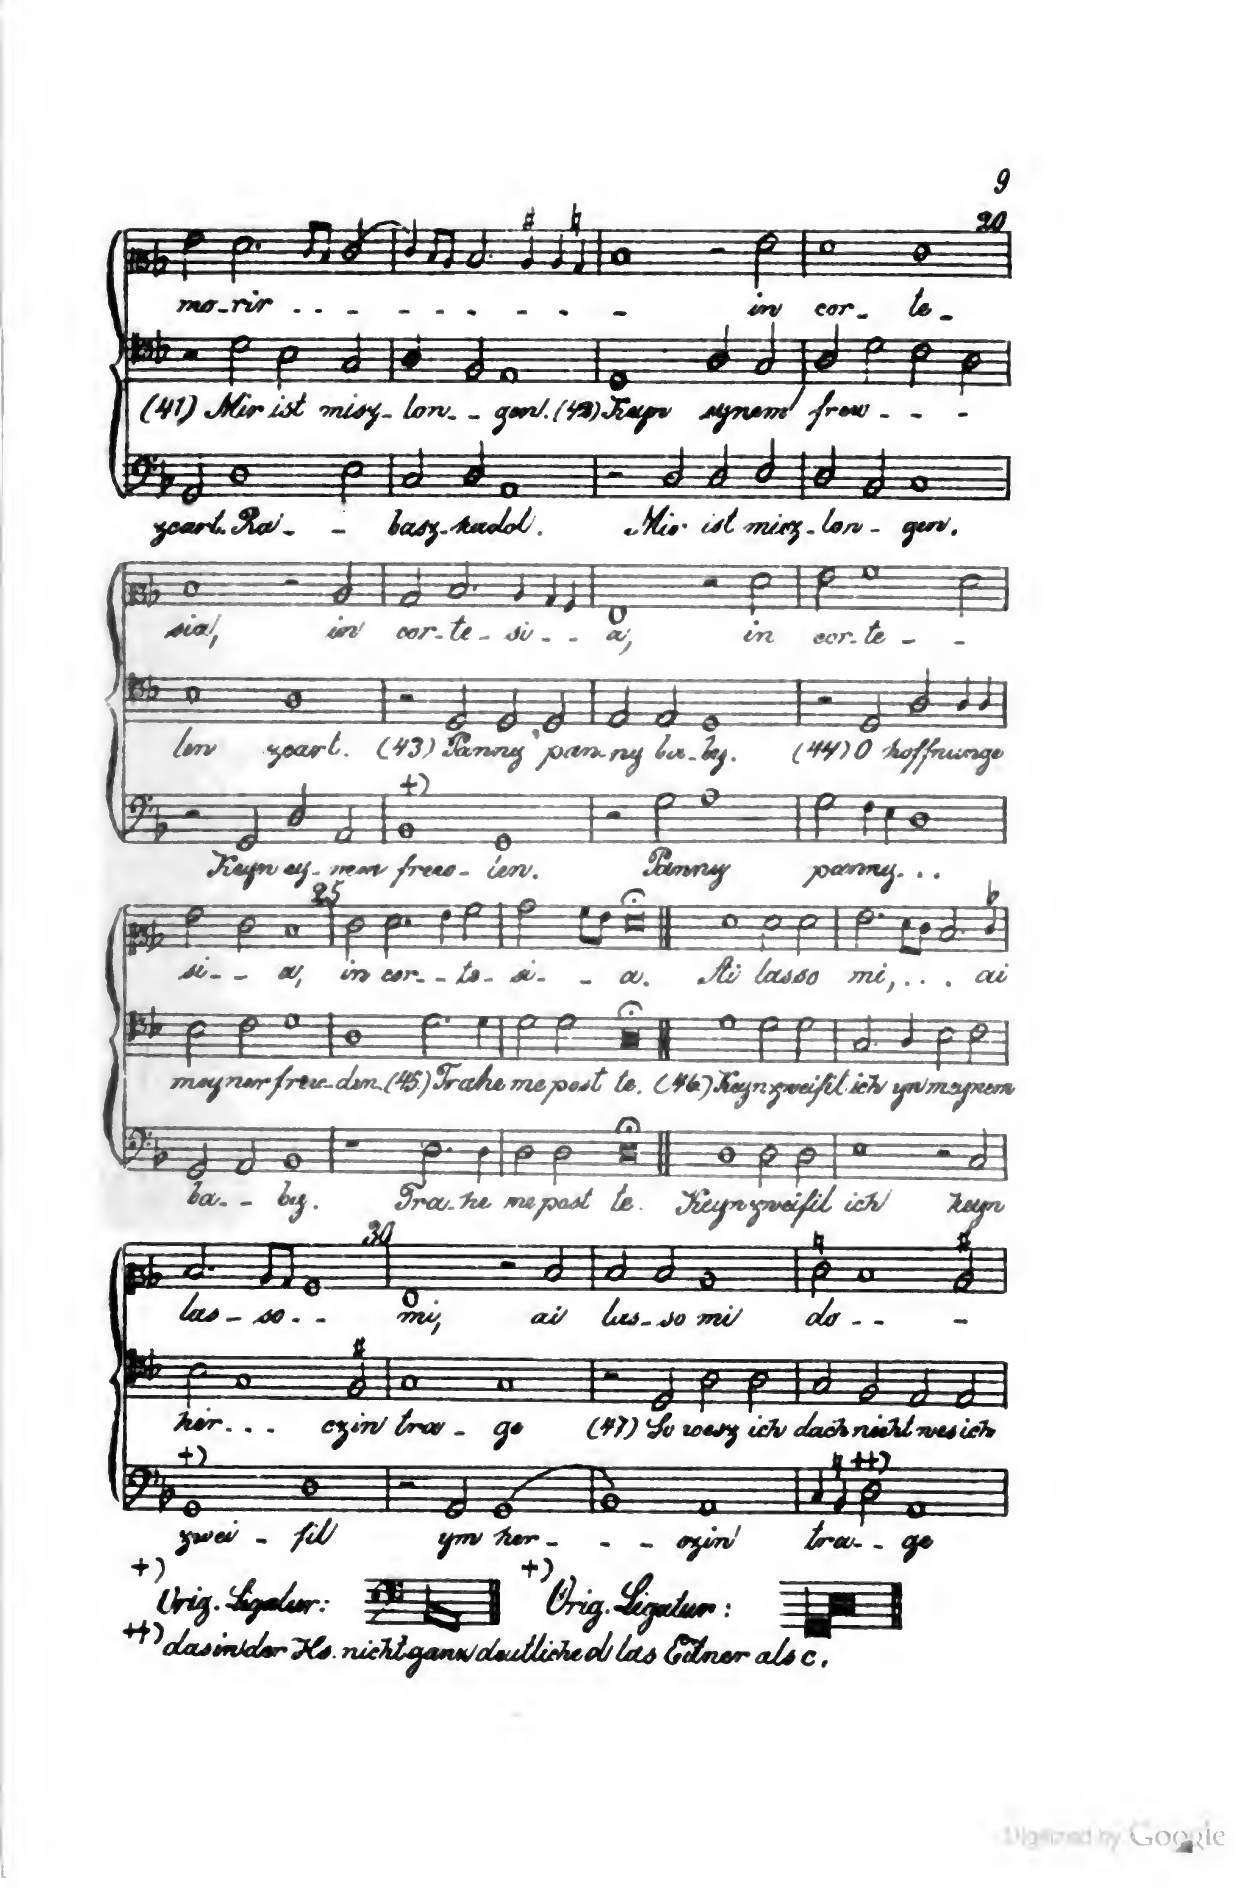 9
20
mo-rir . . - - - - - - - in cor- te-
(41) Mir ist misz-lon- - gen. (42) Keyn eynem frew - - -
zcart. Ra- - basz-kadol. Mir ist misz-lon- gen.
sia, in cor-te-si- - a, in cor-te - -
len zcart. (43) Panny pan-ny ba-by. (44) O hoffnunge
+)
Keyn ey-nem frew-len. Panny panny. . .
25
si- - a, in cor- -te- si- - a. Ai lasso mi,. . . ai
meyner frew-den. (45.) Trahe me post te. (46.) Keyn zweifil ich yn meynem
ba- - by. Tra-he me post te. Keyn zweifil ich keyn
30
las - so- - mi, ai las-so mi do- - -
her. . . czin tra- ge (47) So wesz ich dach nicht wes ich
+) ++)
zwei - fil ym her- - - - czin tra- - ge
+) Orig. Ligatur: +) Orig. Ligatur:
++) das in der Hs. nicht ganz deutliche d las Eitner als c.
Digitized by Google